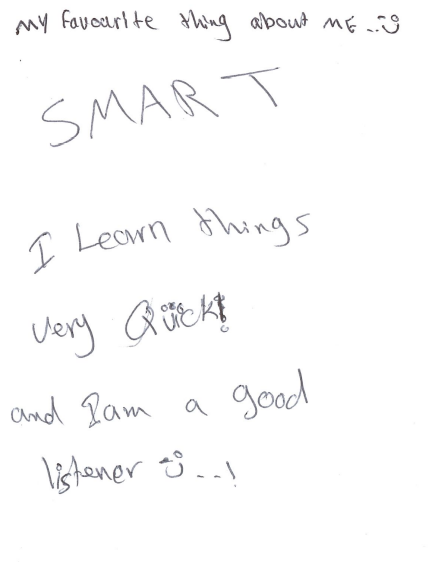 my favourite thing about ME ..☺
SMART
I Learn things
very Quick!
and I am a good
listener ☺ ..!